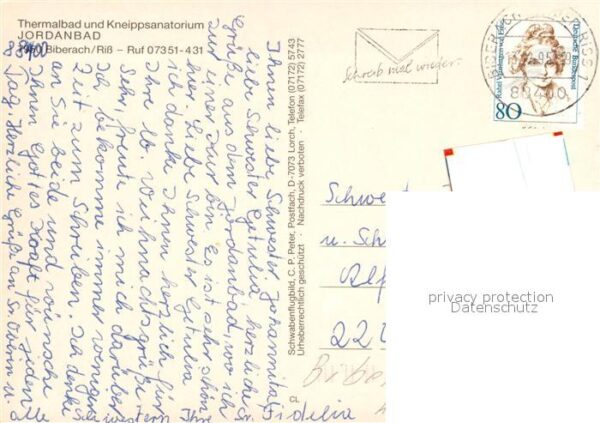 Thermalbad und Kneippsanatorium
JORDANBAD
7950 Biberach/Riß - Ruf 07351-431
88400
Ihnen liebe Schwester Johannita,
liebe Schwester Getulia, herzliche
Grüße aus dem Jordanbad, wo ich
zur eine Kur bin. Es ist sehr schön
hier. Liebe Schwester Getulia
ich danke Ihnen herzlich für
Ihre lb. Weihnachtsgrüße.
Sehr freute ich mich darüber
Ich bekomme immer weniger
Zeit zum Schreiben. Ich denke
an Sie beide und wünsche
Ihnen Gottes Kraft für jeden
Tag. Herzliche Grüße an Sr. u.
alle Schwestern Ihre
Sr. Fidelia
Schwabenflugbild, C. P. Peter, Postfach, D-7073 Lorch, Telefon (07172) 5743
Urheberrechtlich geschützt · Nachdruck verboten · Telefax (07172) 2777
Schreib mal wieder.
BIBERACH
88400
Deutsche Bundespost
Rahel Varnhagen von Ense
80
Schwest
u. Sch
privacy protection
Datenschutz